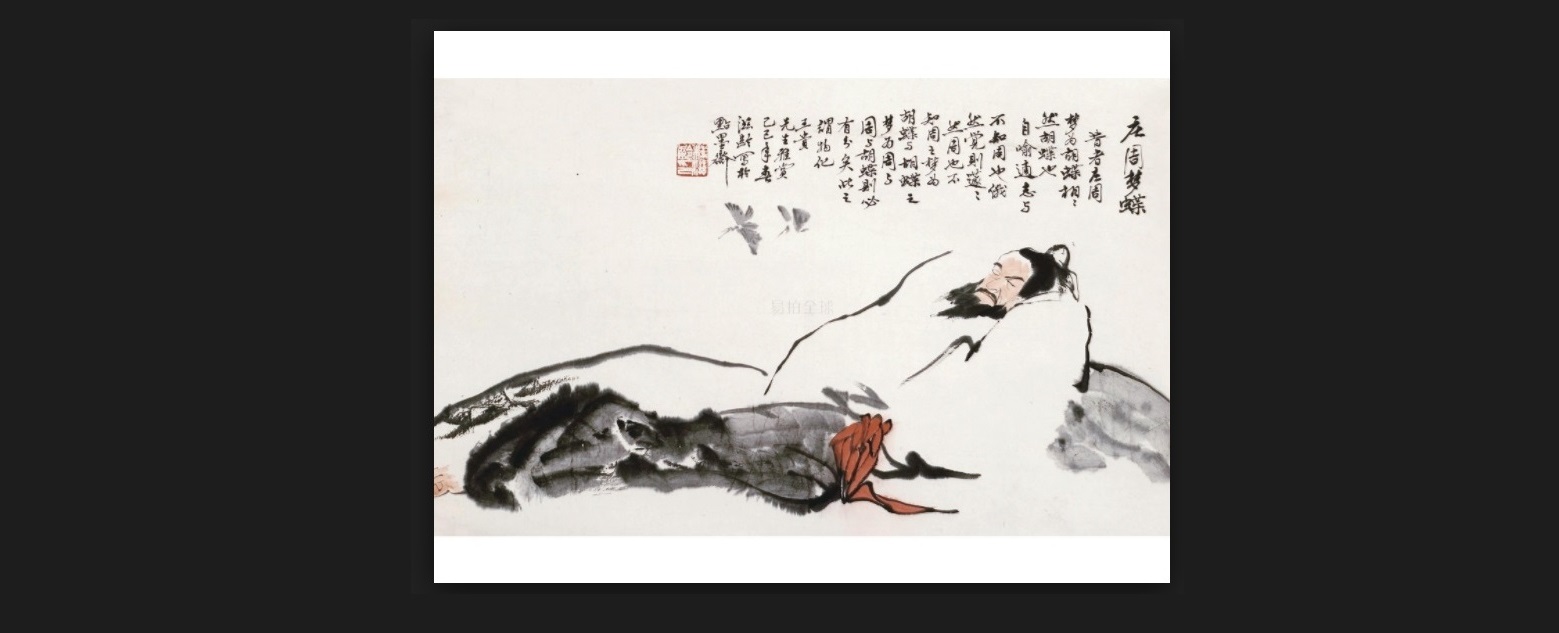 庄周梦蝶
昔者庄周
梦为胡蝶栩々
然胡蝶也
自喻適志与
不知周也俄
然觉则蘧々
然周也不
知周之梦为
胡蝶与胡蝶之
梦为周与
周与胡蝶则必
有分矣此之
谓物化
先生雅赏
己巳年春
滋龄写於
點墨斋
易拍全球